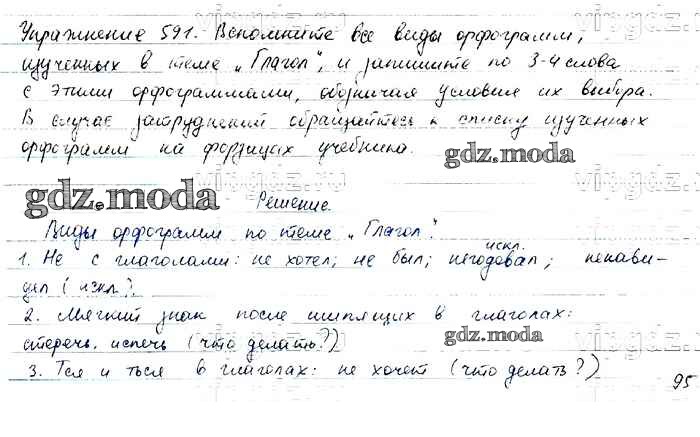 Упражнение 591. Вспомните все виды орфограмм,
изученных в теме „Глагол", и запишите по 3-4 слова
с этими орфограммами, обозначив условие их выбора.
В случае затруднений обращайтесь к списку изученных
орфограмм на форзацах учебника.
gdz.moda
gdz.moda
Решение.
Виды орфограмм по теме „Глагол".
искл.
1. Не с глаголами: не хотел; не был; негодовал; ненави-
дел (искл).
2. Мягкий знак после шипящих в глаголах:
стеречь, испечь (что делать?)
gdz.moda
3. Тся и ться в глаголах: не хочет (что делать?)
95